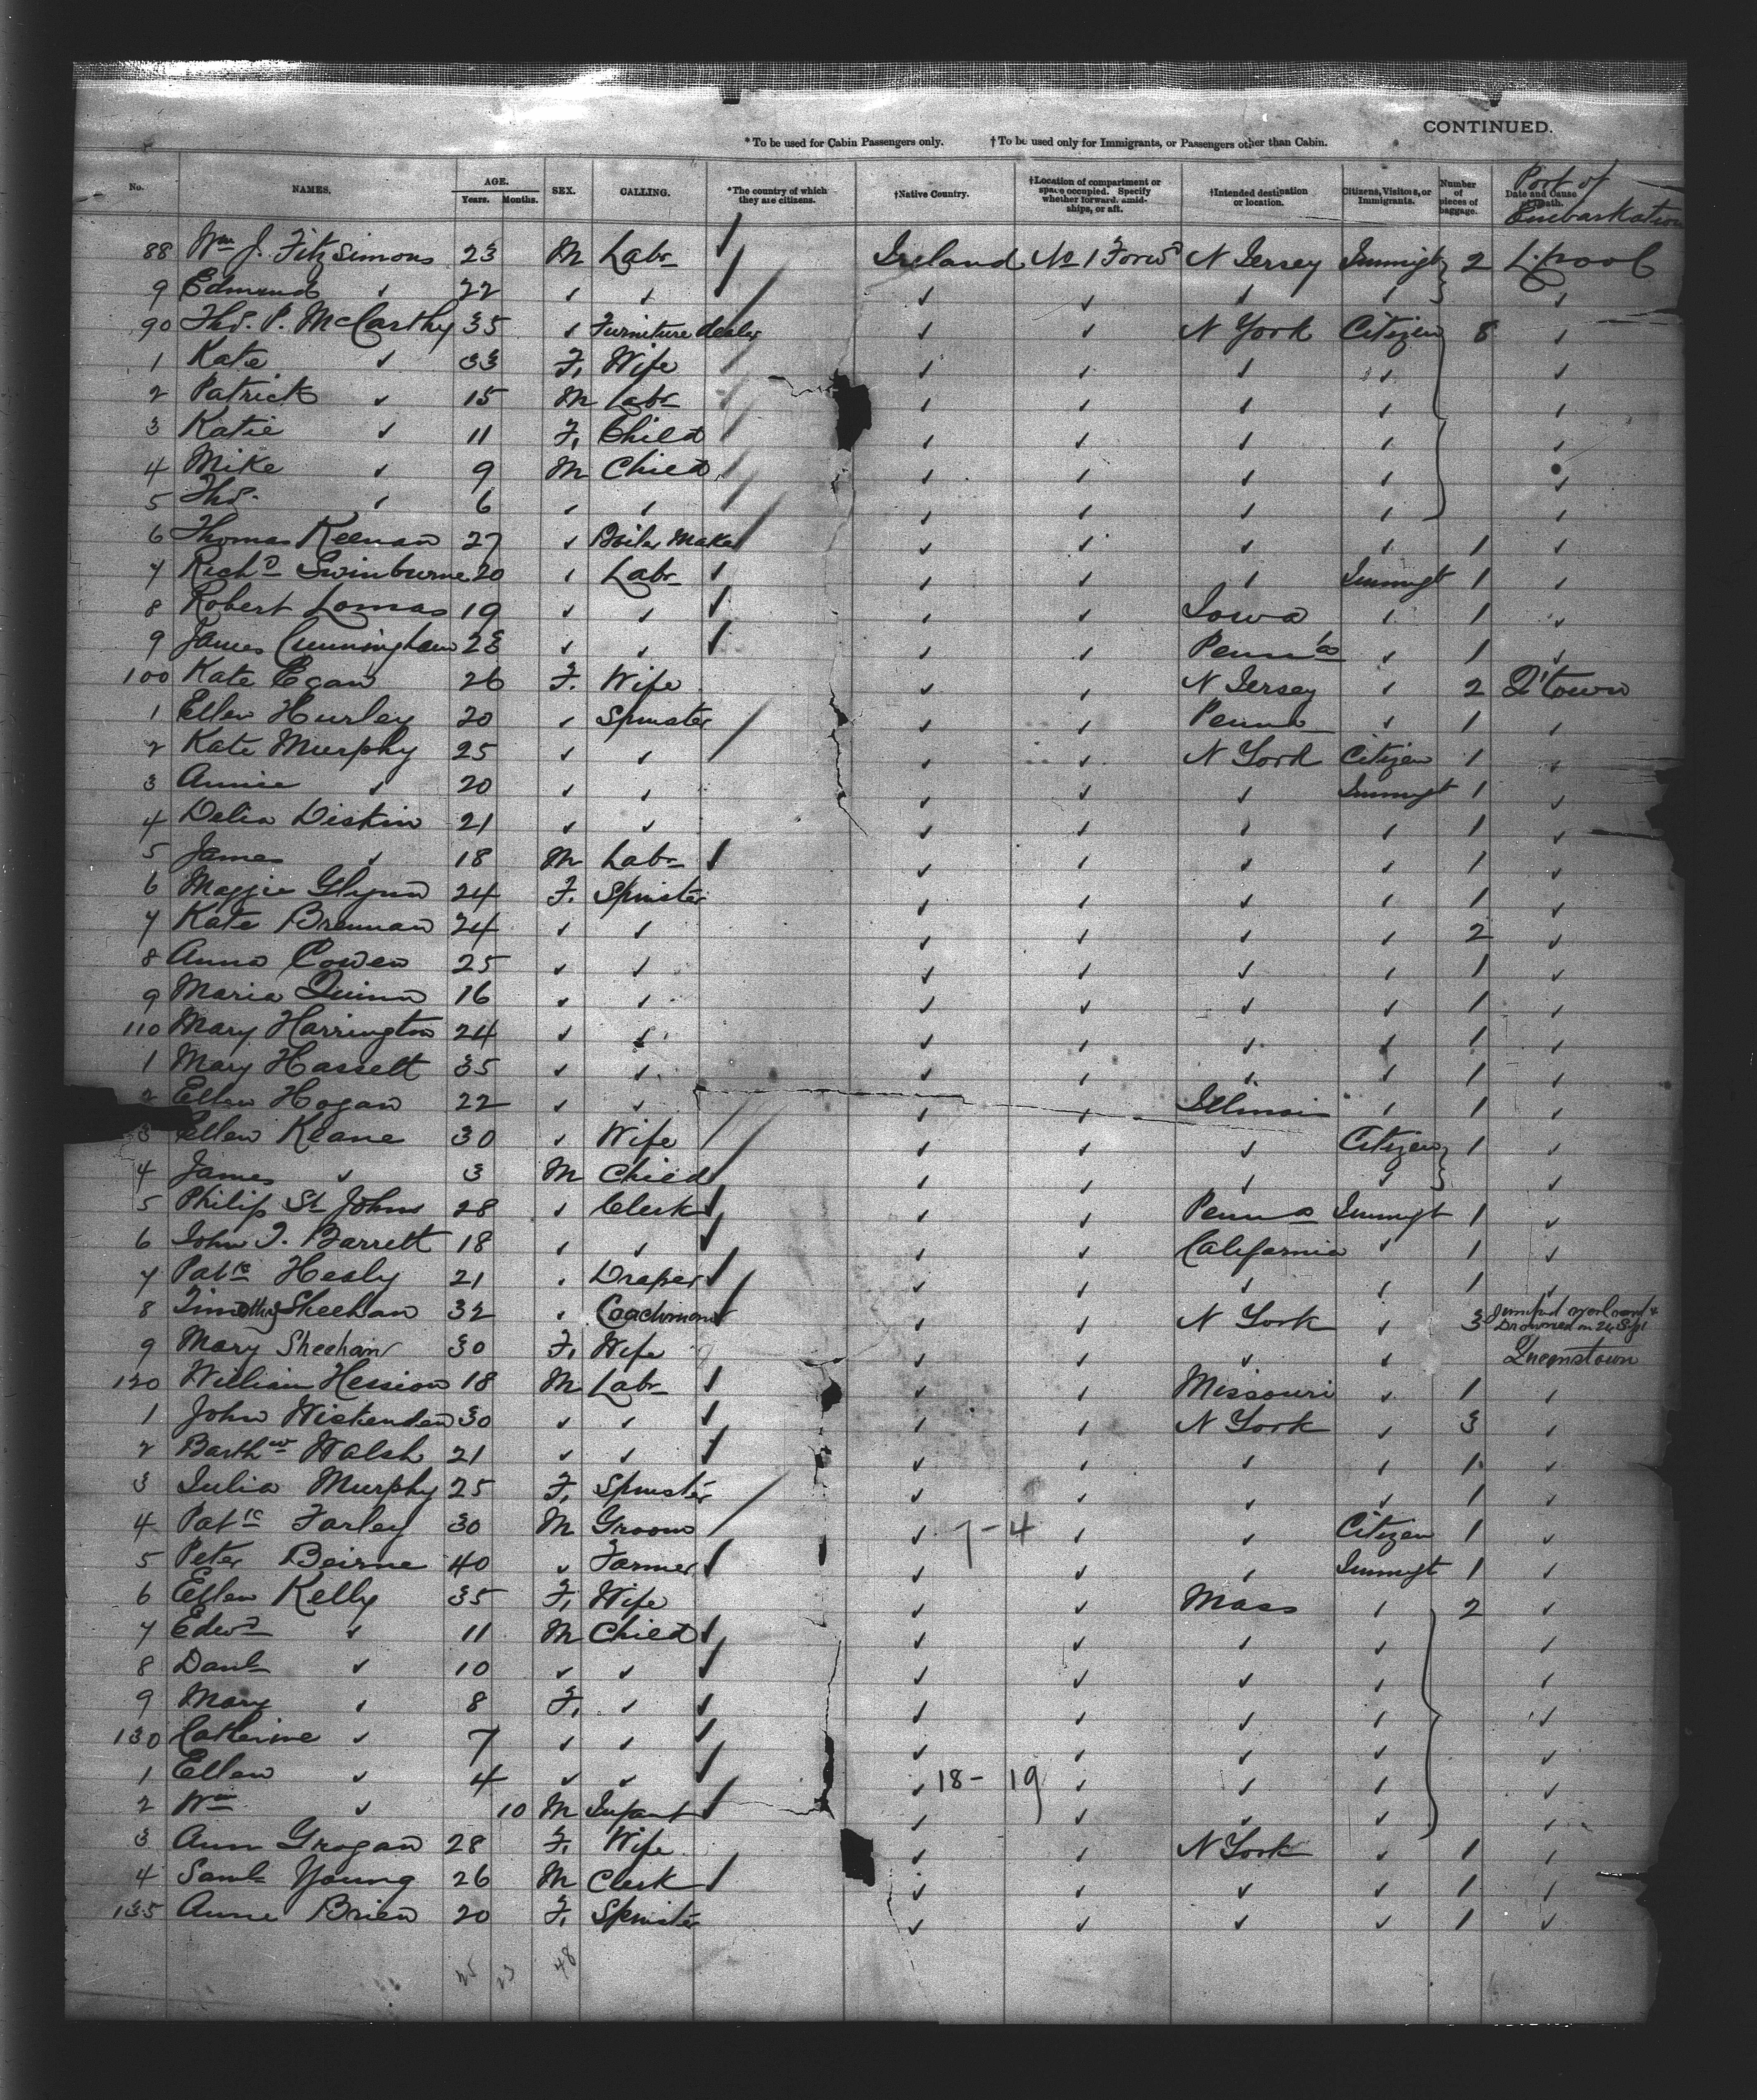 CONTINUED.
* To be used for Cabin Passengers only. † To be used only for Immigrants, or Passengers other than Cabin.
No. NAMES. AGE. Years. Months. SEX. CALLING. *The country of which they are citizens. †Native Country. †Location of compartment or space occupied. Specify whether forward, amidships, or aft. †Intended destination or location. Citizens, Visitors, or Immigrants. Number of pieces of baggage. Date and Cause of Death. Port of Embarkation
88 Wm J. Fitzsimons 23 M Labr Ireland No 1 Forwd N Jersey Immigt 2 L'pool
9 Edmund ✓ 22 ✓ ✓ ✓ ✓ ✓ ✓ ✓
90 Thos. P. McCarthy 35 ✓ Furniture dealer ✓ ✓ N York Citizen 8 ✓
1 Kate ✓ 33 F. Wife ✓ ✓ ✓ ✓ ✓
2 Patrick ✓ 15 M Labr ✓ ✓ ✓ ✓ ✓
3 Katie ✓ 11 F. Child ✓ ✓ ✓ ✓ ✓
4 Mike ✓ 9 M Child ✓ ✓ ✓ ✓ ✓
5 Thos. ✓ 6 ✓ ✓ ✓ ✓ ✓ ✓ ✓
6 Thomas Keenan 27 ✓ Boiler Maker ✓ ✓ ✓ ✓ 1 ✓
7 Richd Swinburne 20 ✓ Labr ✓ ✓ ✓ Immigt 1 ✓
8 Robert Lomas 19 ✓ ✓ ✓ ✓ Iowa ✓ 1 ✓
9 James Cunningham 28 ✓ ✓ ✓ ✓ Penna ✓ 1 ✓
100 Kate Egan 26 F. Wife ✓ ✓ N Jersey ✓ 2 Q'town
1 Ellen Hurley 20 ✓ Spinster ✓ ✓ Penna ✓ 1 ✓
2 Kate Murphy 25 ✓ ✓ ✓ ✓ N York Citizen 1 ✓
3 Annie ✓ 20 ✓ ✓ ✓ ✓ ✓ Immigt 1 ✓
4 Delia Diskin 21 ✓ ✓ ✓ ✓ ✓ ✓ 1 ✓
5 James ✓ 18 M Labr ✓ ✓ ✓ ✓ 1 ✓
6 Maggie Glynn 24 F. Spinster ✓ ✓ ✓ ✓ 1 ✓
7 Kate Brennan 24 ✓ ✓ ✓ ✓ ✓ ✓ 2 ✓
8 Anna Cowen 25 ✓ ✓ ✓ ✓ ✓ ✓ 1 ✓
9 Maria Quinn 16 ✓ ✓ ✓ ✓ ✓ ✓ 1 ✓
110 Mary Harrington 24 ✓ ✓ ✓ ✓ ✓ ✓ 1 ✓
1 Mary Hassett 35 ✓ ✓ ✓ ✓ ✓ ✓ 1 ✓
2 Ellen Hogan 22 ✓ ✓ ✓ ✓ Illinois ✓ 1 ✓
3 Ellen Keane 30 ✓ Wife ✓ ✓ ✓ Citizen 1 ✓
4 James ✓ 3 M Child ✓ ✓ ✓ ✓ ✓
5 Philip St Johns 28 ✓ Clerk ✓ ✓ Penna Immigt 1 ✓
6 John J. Barrett 18 ✓ ✓ ✓ ✓ California ✓ 1 ✓
7 Patk Healy 21 ✓ Draper ✓ ✓ ✓ ✓ 1 ✓
8 Timothy Sheehan 32 ✓ Coachman ✓ ✓ N York ✓ 3 Jumped overboard & Drowned on 24 Sept
9 Mary Sheehan 30 F. Wife ✓ ✓ ✓ ✓ Queenstown
120 William Hession 18 M Labr ✓ ✓ Missouri ✓ 1 ✓
1 John Wiskenden 30 ✓ ✓ ✓ ✓ N York ✓ 3 ✓
2 Barthw Walsh 21 ✓ ✓ ✓ ✓ ✓ ✓ 1 ✓
3 Julia Murphy 25 F. Spinster ✓ ✓ ✓ ✓ 1 ✓
4 Patk Farley 30 M Groom ✓ 7-4 ✓ ✓ Citizen 1 ✓
5 Peter Beirne 40 ✓ Farmer ✓ ✓ ✓ Immigt 1 ✓
6 Ellen Kelly 35 F. Wife ✓ ✓ Mass ✓ 2 ✓
7 Edwd ✓ 11 M Child ✓ ✓ ✓ ✓ ✓
8 Danl ✓ 10 ✓ ✓ ✓ ✓ ✓ ✓ ✓
9 Mary ✓ 8 F. ✓ ✓ ✓ ✓ ✓ ✓
130 Catherine ✓ 7 ✓ ✓ ✓ ✓ ✓ ✓ ✓
1 Ellen ✓ 4 ✓ ✓ ✓ 18-19 ✓ ✓ ✓ ✓
2 Wm ✓ 10 M Infant ✓ ✓ ✓ ✓ ✓
3 Ann Grogan 28 F. Wife ✓ ✓ N York ✓ 1 ✓
4 Saml Young 26 M Clerk ✓ ✓ ✓ ✓ 1 ✓
135 Anne Brien 20 F. Spinster ✓ ✓ ✓ ✓ 1 ✓
25 23 48